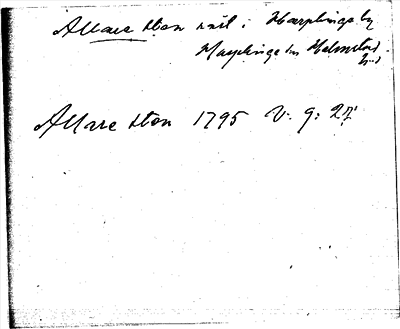 Allare sten rest i Harplinge by
Harplinge sn Halmstad hd
Allare sten 1795 v. g: 27